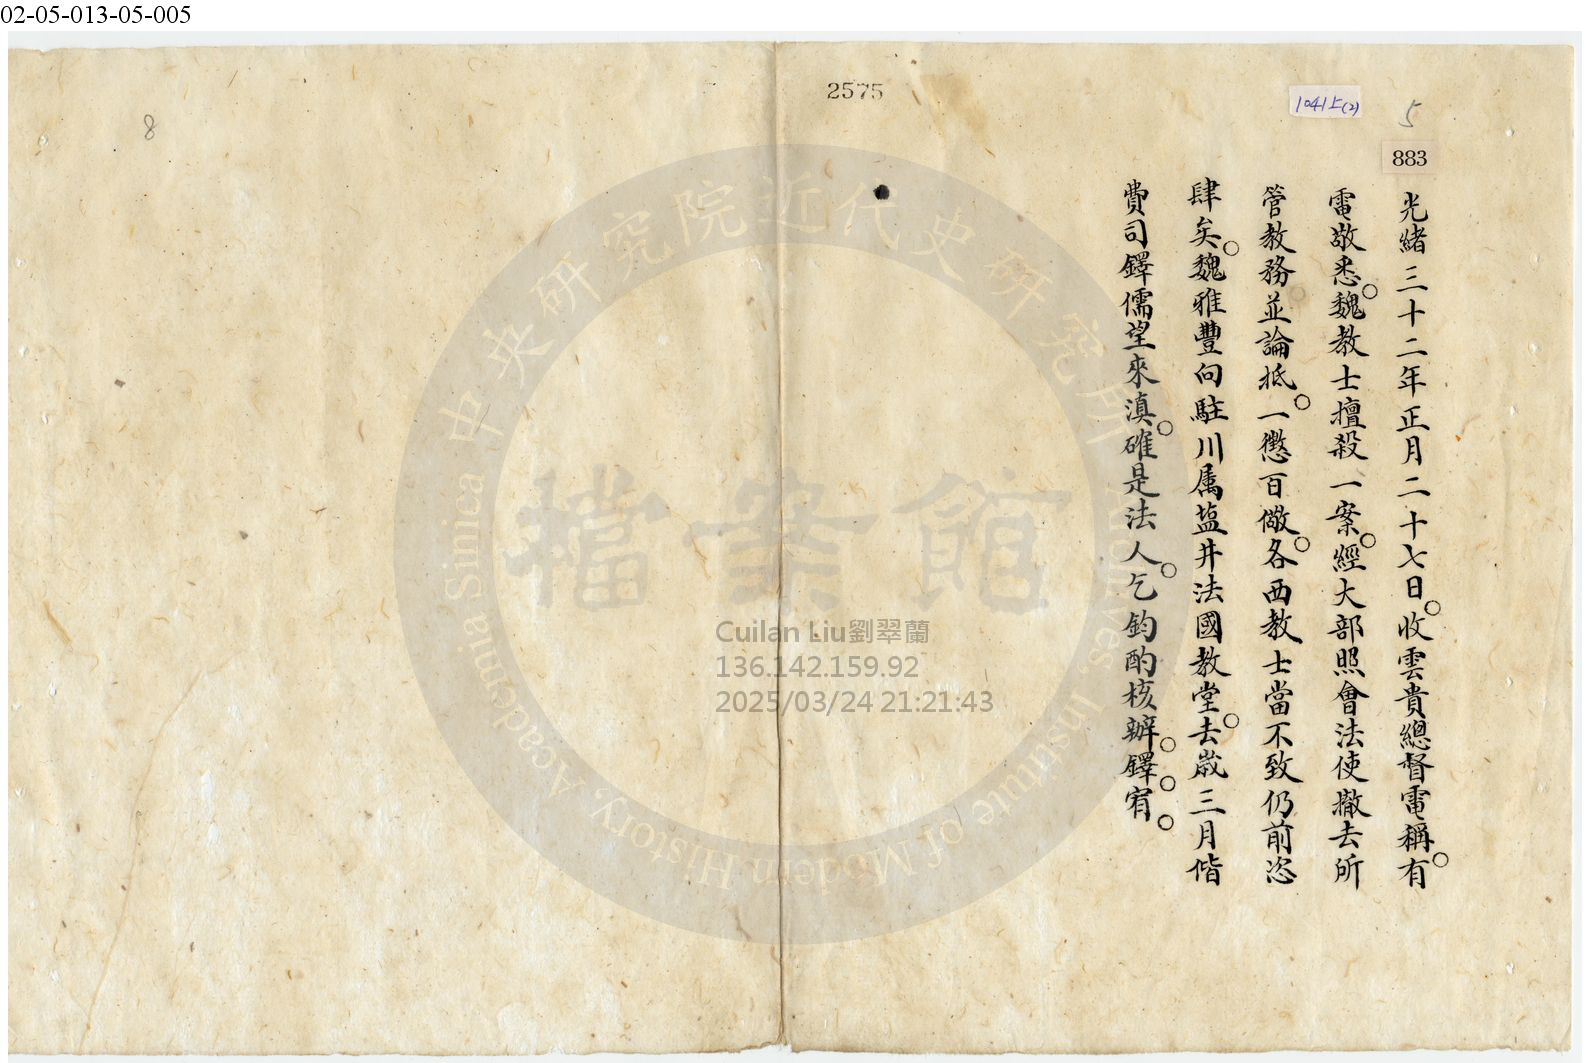 02-05-013-05-005
2575
10415(2)
5
883
8
光緒三十二年正月二十七日○收雲貴總督電稱○有
電敬悉○魏教士擅殺一案○經大部照會法使撤去所
管教務並論抵○一懲百儆○各西教士當不致仍前恣
肆矣○魏雅豐向駐川属塩井法國教堂○去歲三月偕
費司鐸儒望來滇○確是法人○乞鈞酌核辦○鐸○宥○
中央研究院近代史研究所
檔案館
Academia Sinica
Archives, Institute of Modern History, Academia Sinica
Cuilan Liu劉翠蘭
136.142.159.92
2025/03/24 21:21:43